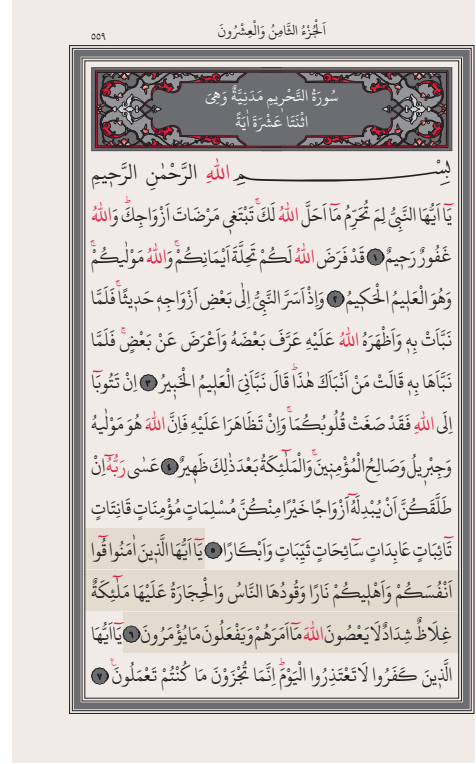 اَلْجُزْءُ الثَّامِنُ وَالْعِشْرُونَ
٥٥٩
سُورَةُ التَّحْرِيمِ مَدَنِيَّةٌ وَهِيَ
اثْنَتَا عَشْرَةَ اٰيَةً
بِسْــــــــمِ اللهِ الرَّحْمٰنِ الرَّحِيمِ
يَٓا اَيُّهَا النَّبِيُّ لِمَ تُحَرِّمُ مَٓا اَحَلَّ اللهُ لَكَۚ تَبْتَغٖي مَرْضَاتَ اَزْوَاجِكَۜ وَاللهُ
غَفُورٌ رَحٖيمٌ ﴿١﴾ قَدْ فَرَضَ اللهُ لَكُمْ تَحِلَّةَ اَيْمَانِكُمْۚ وَاللهُ مَوْلٰيكُمْۚ
وَهُوَ الْعَلٖيمُ الْحَكٖيمُ ﴿٢﴾ وَاِذْ اَسَرَّ النَّبِيُّ اِلٰى بَعْضِ اَزْوَاجِهٖ حَدٖيثًاۚ فَلَمَّا
نَبَّاَتْ بِهٖ وَاَظْهَرَهُ اللهُ عَلَيْهِ عَرَّفَ بَعْضَهُ وَاَعْرَضَ عَنْ بَعْضٍۚ فَلَمَّا
نَبَّاَهَا بِهٖ قَالَتْ مَنْ اَنْبَاَكَ هٰذَاۜ قَالَ نَبَّاَنِيَ الْعَلٖيمُ الْخَبٖيرُ ﴿٣﴾ اِنْ تَتُوبَٓا
اِلَى اللهِ فَقَدْ صَغَتْ قُلُوبُكُمَاۚ وَاِنْ تَظَاهَرَا عَلَيْهِ فَاِنَّ اللهَ هُوَ مَوْلٰيهُ
وَجِبْرٖيلُ وَصَالِحُ الْمُؤْمِنٖينَۚ وَالْمَلٰٓئِكَةُ بَعْدَ ذٰلِكَ ظَهٖيرٌ ﴿٤﴾ عَسٰى رَبُّهُٓ اِنْ
طَلَّقَكُنَّ اَنْ يُبْدِلَهُٓ اَزْوَاجًا خَيْرًا مِنْكُنَّ مُسْلِمَاتٍ مُؤْمِنَاتٍ قَانِتَاتٍ
تَٓائِبَاتٍ عَابِدَاتٍ سَٓائِحَاتٍ ثَيِّبَاتٍ وَاَبْكَارًا ﴿٥﴾ يَٓا اَيُّهَا الَّذٖينَ اٰمَنُوا قُٓوا
اَنْفُسَكُمْ وَاَهْلٖيكُمْ نَارًا وَقُودُهَا النَّاسُ وَالْحِجَارَةُ عَلَيْهَا مَلٰٓئِكَةٌ
غِلَاظٌ شِدَادٌ لَا يَعْصُونَ اللهَ مَٓا اَمَرَهُمْ وَيَفْعَلُونَ مَا يُؤْمَرُونَ ﴿٦﴾ يَٓا اَيُّهَا
الَّذٖينَ كَفَرُوا لَا تَعْتَذِرُوا الْيَوْمَۜ اِنَّمَا تُجْزَوْنَ مَا كُنْتُمْ تَعْمَلُونَۚ ﴿٧﴾